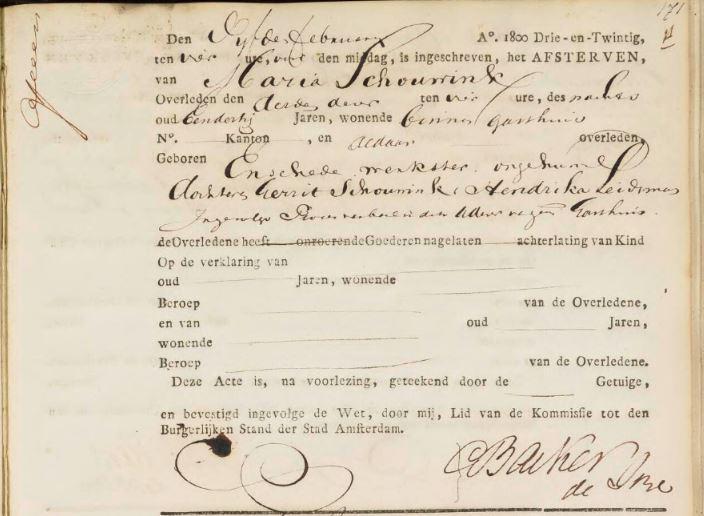 171
Den Vyfde Februarij A°. 1800 Drie-en-Twintig,
ten vier ure, voor den middag, is ingeschreven, het AFSTERVEN,
van Maria Schourrink
Overleden den derde dezer ten vier ure, des nachts
oud Eendertig Jaren, wonende binnen Gasthuis
N°. Kanton , en aldaar overleden,
Geboren Enschede werkster ongehuwd
dochter Gerrit Schourrink & Hendrika
Ingevolge Procesverbaal Gasthuis.
de Overledene heeft onroerende Goederen nagelaten achterlating van Kind
Op de verklaring van
oud Jaren, wonende
Beroep van de Overledene,
en van oud Jaren,
wonende
Beroep van de Overledene.
Deze Acte is, na voorlezing, geteekend door de Getuige,
en bevestigd ingevolge de Wet, door mij, Lid van de Kommissie tot den
Burgerlijken Stand der Stad Amsterdam.
Backer